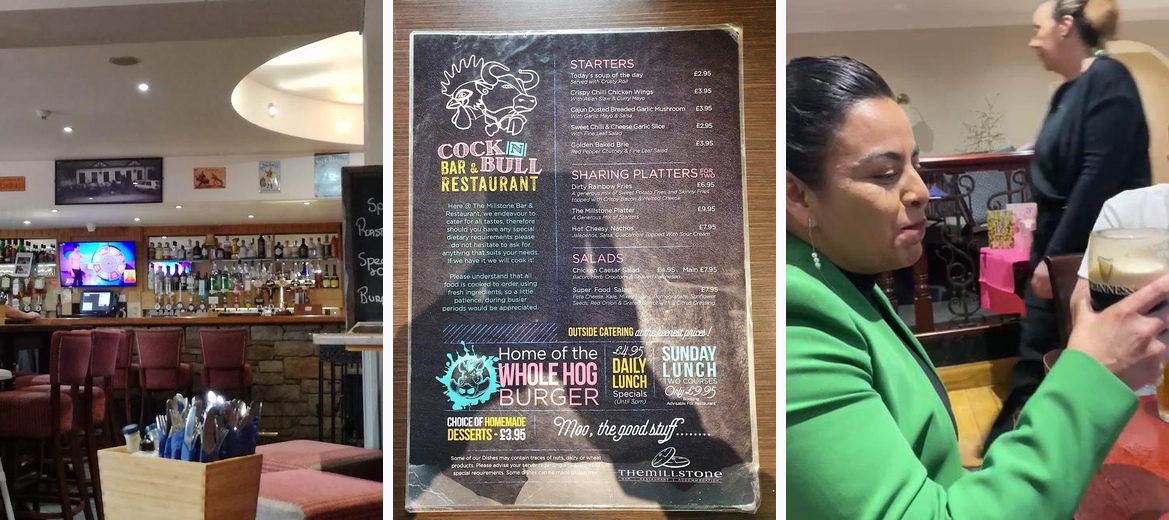 Sp
Roast
Spec
Burg
COCK N
BULL
BAR &
RESTAURANT
Here @ The Millstone Bar &
Restaurant, we endeavour to
cater for all tastes, therefore
should you have any special
dietary requirements please
do not hesitate to ask for
anything that suits your needs.
If we have it we will cook it!
Please understand that all
food is cooked to order using
fresh ingredients, so a little
patience, during busier
periods would be appreciated.
STARTERS
Today's soup of the day £2.95
Served with Crusty Roll
Crispy Chilli Chicken Wings £3.95
With Asian Slaw & Curry Mayo
Cajun Dusted Breaded Garlic Mushroom £3.95
With Garlic Mayo & Salsa
Sweet Chilli & Cheese Garlic Slice £2.95
With Fine Leaf Salad
Golden Baked Brie £3.95
Red Pepper Chutney & Fine Leaf Salad
SHARING PLATTERS FOR TWO
Dirty Rainbow Fries £6.95
A generous mix of Sweet Potato Fries and Skinny Fries
topped with Crispy Bacon & Melted Cheese
The Millstone Platter £9.95
A Generous Mix of Starters
Hot Cheesy Nachos £7.95
Jalapenos, Salsa, Guacamole Topped With Sour Cream
SALADS
Chicken Caesar Salad £4.95 Main £7.95
Super Food Salad £7.95
OUTSIDE CATERING at the keenest prices!
Home of the
WHOLE HOG
BURGER
£4.95
DAILY
LUNCH
Specials
(Until 5pm)
SUNDAY
LUNCH
TWO COURSES
Only £9.95
Booking
Advisable For Restaurant
CHOICE OF HOMEMADE
DESSERTS - £3.95
Moo, the good stuff........
Some of our Dishes may contain traces of nuts, dairy or wheat
products. Please advise your server
special requirements. Some dishes can be made
THE MILLSTONE
BAR | RESTAURANT | ACCOMMODATION
GUINNESS